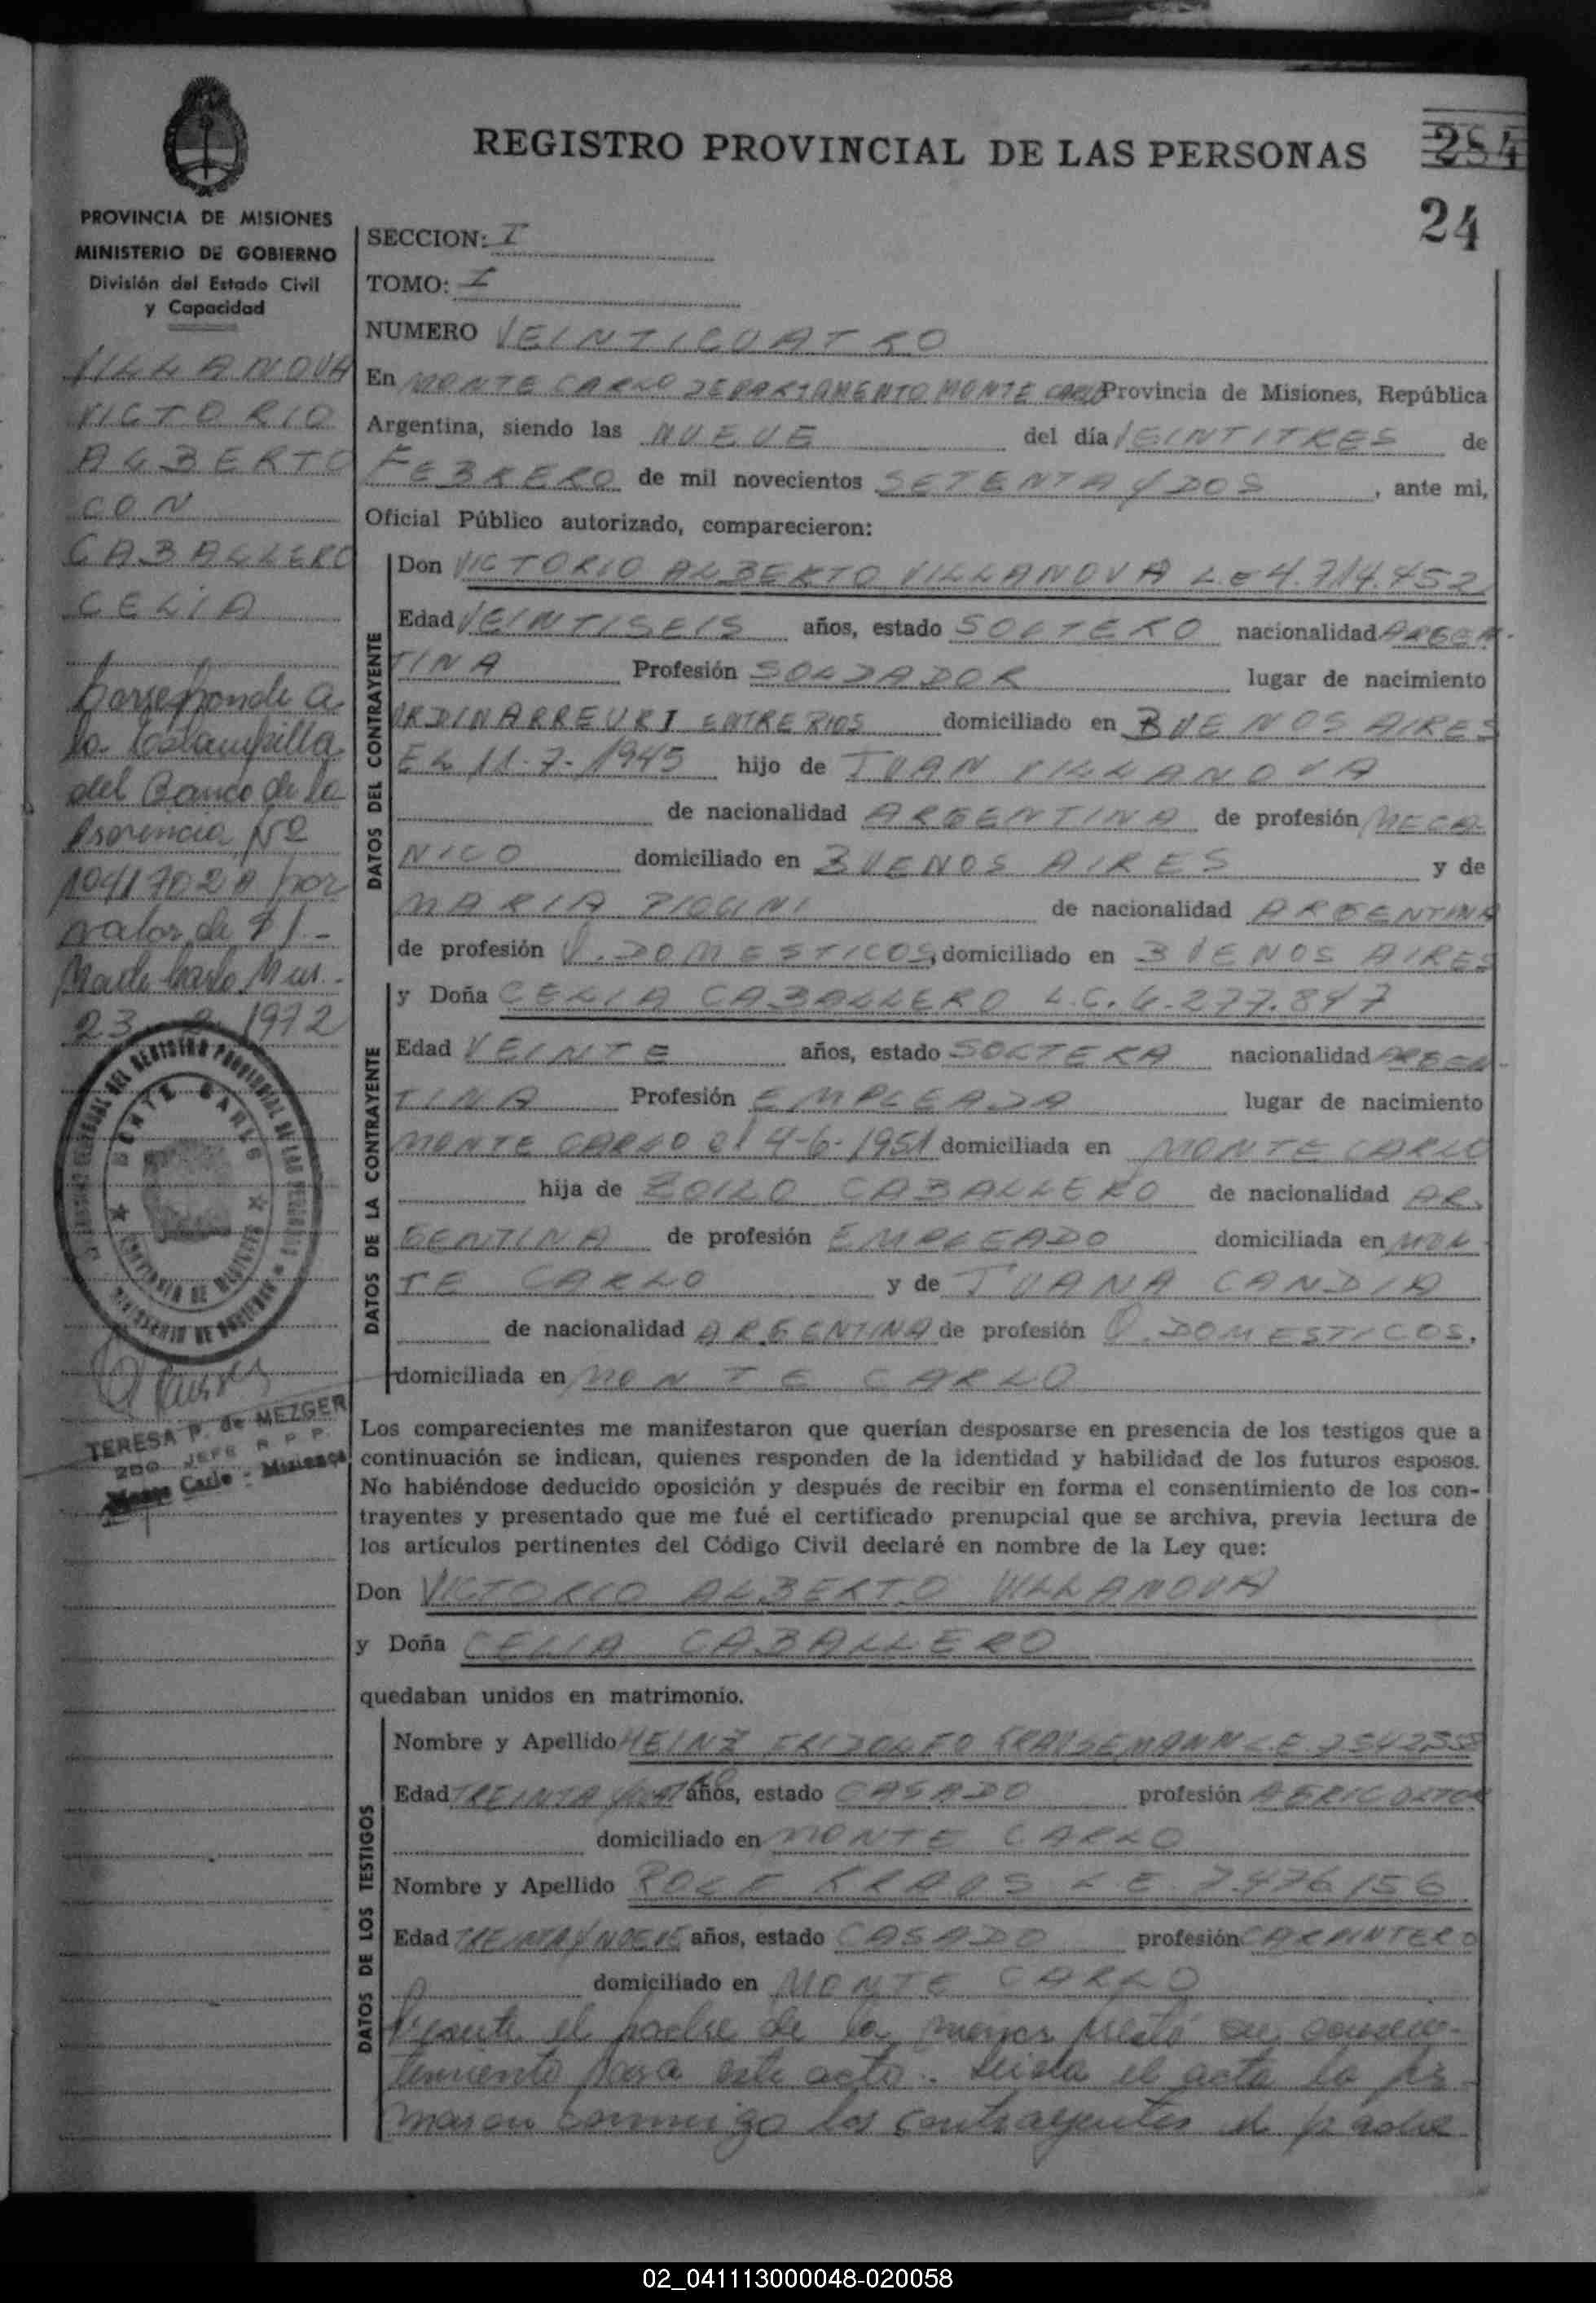 REGISTRO PROVINCIAL DE LAS PERSONAS
284
24
PROVINCIA DE MISIONES
MINISTERIO DE GOBIERNO
División del Estado Civil
y Capacidad
VILLANOVA
VICTORIO
ALBERTO
CON
CABALLERO
CELIA
Corresponde a
la estampilla
del Banco de la
Provincia Nº
1041702A por
valor de $ 1.-
Monte Carlo, Mnes.-
23 2 1972
MONTE CARLO
TERESA P. de MEZGER
2DO JEFE R P P.
Monte Carlo - Misiones
SECCION: I
TOMO: I
NUMERO VEINTICUATRO
En MONTE CARLO DEPARTAMENTO MONTE CARLO Provincia de Misiones, República
Argentina, siendo las NUEVE del día VEINTITRES de
FEBRERO de mil novecientos SETENTA Y DOS, ante mi,
Oficial Público autorizado, comparecieron:
DATOS DEL CONTRAYENTE
Don VICTORIO ALBERTO VILLANOVA L.E 4.714.452
Edad VEINTISEIS años, estado SOLTERO nacionalidad ARGEN-
TINA Profesión SOLDADOR lugar de nacimiento
URDINARREURI ENTRE RIOS domiciliado en BUENOS AIRES
EL 11-7-1945 hijo de JUAN VILLANOVA
de nacionalidad ARGENTINA de profesión MECA-
NICO domiciliado en BUENOS AIRES y de
MARIA de nacionalidad ARGENTINA
de profesión Q. DOMESTICOS, domiciliado en BUENOS AIRES
DATOS DE LA CONTRAYENTE
y Doña CELIA CABALLERO L.C. 6.277.847
Edad VEINTE años, estado SOLTERA nacionalidad ARGEN-
TINA Profesión EMPLEADA lugar de nacimiento
MONTE CARLO el 4-6-1951 domiciliada en MONTE CARLO
hija de ZOILO CABALLERO de nacionalidad AR-
GENTINA de profesión EMPLEADO domiciliada en MON-
TE CARLO y de JUANA CANDIA
de nacionalidad ARGENTINA de profesión Q. DOMESTICOS,
domiciliada en MONTE CARLO
Los comparecientes me manifestaron que querían desposarse en presencia de los testigos que a
continuación se indican, quienes responden de la identidad y habilidad de los futuros esposos.
No habiéndose deducido oposición y después de recibir en forma el consentimiento de los con-
trayentes y presentado que me fué el certificado prenupcial que se archiva, previa lectura de
los artículos pertinentes del Código Civil declaré en nombre de la Ley que:
Don VICTORIO ALBERTO VILLANOVA
y Doña CELIA CABALLERO
quedaban unidos en matrimonio.
DATOS DE LOS TESTIGOS
Nombre y Apellido HEINZ FRIDOLFO L.E.
Edad TREINTA Y años, estado CASADO profesión AGRICULTOR
domiciliado en MONTE CARLO
Nombre y Apellido ROLF KRAUS L.E. 7.476.156
Edad TREINTA Y NUEVE años, estado CASADO profesión CARPINTERO
domiciliado en MONTE CARLO
Presente el padre de la menor prestó su consen-
timiento para este acto. Leida el acta la fir-
maron conmigo los contrayentes el padre
02_041113000048-020058